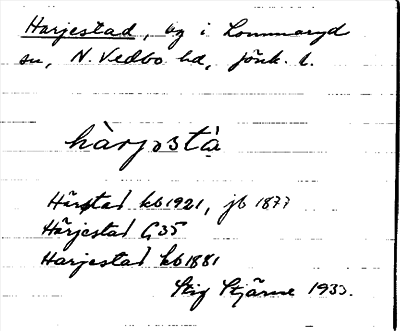 Harjestad, vg i Lommaryd
sn, N. Vedbo hd, Jönk. l.
hàrjəstà
Härstad kb 1921, jb 1877
Härjestad G35
Harjestad kb 1881
Stig Stjärne 1933.